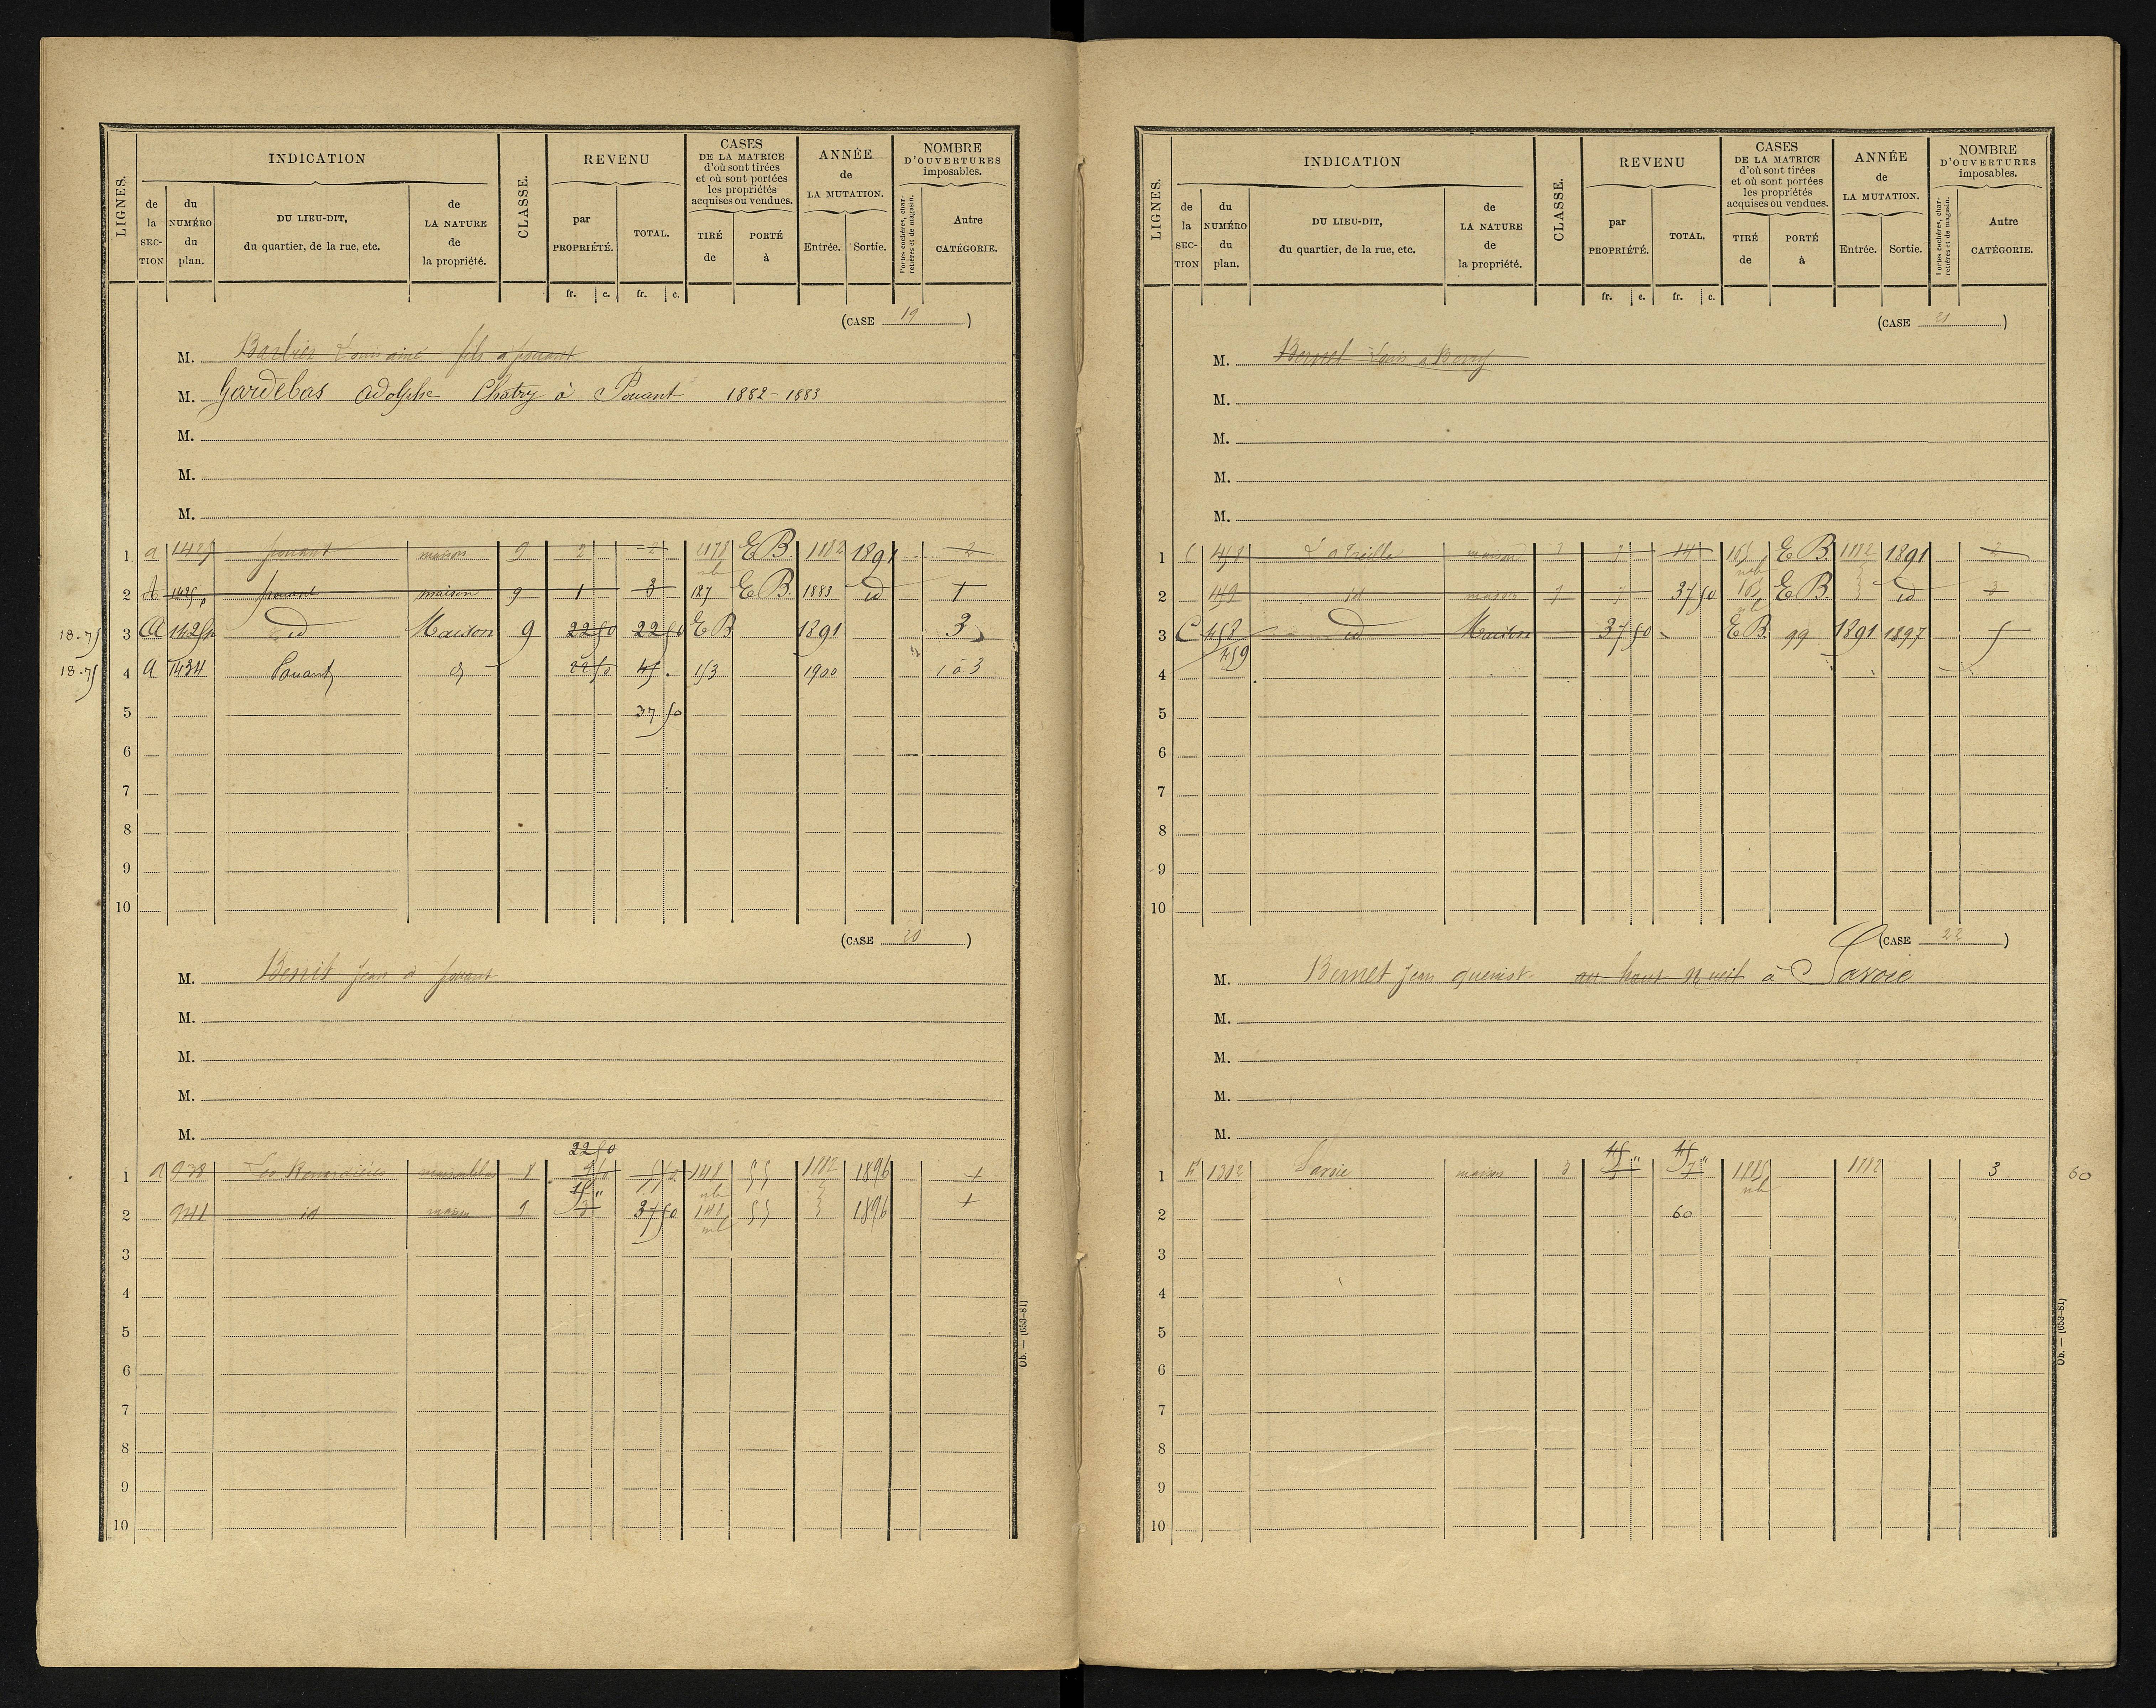 LIGNES.
INDICATION
de la SECTION
du NUMÉRO du plan.
DU LIEU-DIT, du quartier, de la rue, etc.
de LA NATURE de la propriété.
CLASSE.
REVENU
par PROPRIÉTÉ.
TOTAL.
CASES DE LA MATRICE d'où sont tirées et où sont portées les propriétés acquises ou vendues.
TIRÉ de
PORTÉ à
ANNÉE de LA MUTATION.
Entrée.
Sortie.
NOMBRE D'OUVERTURES imposables.
Portes cochères, charretières et de magasin.
Autre CATÉGORIE.
fr. c. fr. c.
(CASE 19)
M. Barbier ainé fils a pouant
M. Gardebas adolphe Chatry à Pouant 1882-1883
M.
M.
M.
1 a 1425 pouant maison 9 2 2 E B. 1882 1891 2
2 A pouant maison 9 1 3 127 E B. 1883 id 1
18-75 3 A id Maison 9 22 50 22 50 E B 1891 3
18-75 4 a 1434 Pouant d 22 50 45 . 153 1900 1 à 3
5 37 50
6
7
8
9
10
(CASE 20)
M. Benit jean à pouant
M.
M.
M.
M.
22 50
1 a 938 Les Renardières 8 148 55 1882 1896 1
15 "
2 941 id maison 9 3 37 50 148 55 1896 1
3
4
5
6
7
8
9
10
Ob. — (653-81)
LIGNES.
INDICATION
de la SECTION
du NUMÉRO du plan.
DU LIEU-DIT, du quartier, de la rue, etc.
de LA NATURE de la propriété.
CLASSE.
REVENU
par PROPRIÉTÉ.
TOTAL.
CASES DE LA MATRICE d'où sont tirées et où sont portées les propriétés acquises ou vendues.
TIRÉ de
PORTÉ à
ANNÉE de LA MUTATION.
Entrée.
Sortie.
NOMBRE D'OUVERTURES imposables.
Portes cochères, charretières et de magasin.
Autre CATÉGORIE.
fr. c. fr. c.
(CASE 21)
M. Bernet Louis a
M.
M.
M.
M.
1 C 458 maison 7 7 14 E B. 1882 1891 2
2 459 id maison 7 7 37 50 E B. id 3
3 C 458 id Maison 37 50 E B. 99 1891 1897 5
459
4
5
6
7
8
9
10
(CASE 22)
M. Bernet jean au haut à Savoie
M.
M.
M.
M.
45 " 45 "
1 1302 Savoie maison 1882 3 60
2 60
3
4
5
6
7
8
9
10
Ob. — (653-81)